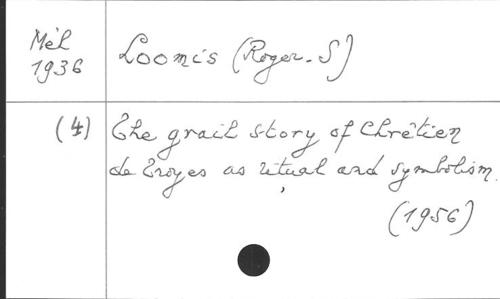 Mél
1936
Loomis (Roger. S)
(4)
The grail story of Chrêtien
de Troyes as ritual and symbolism.
(1956)